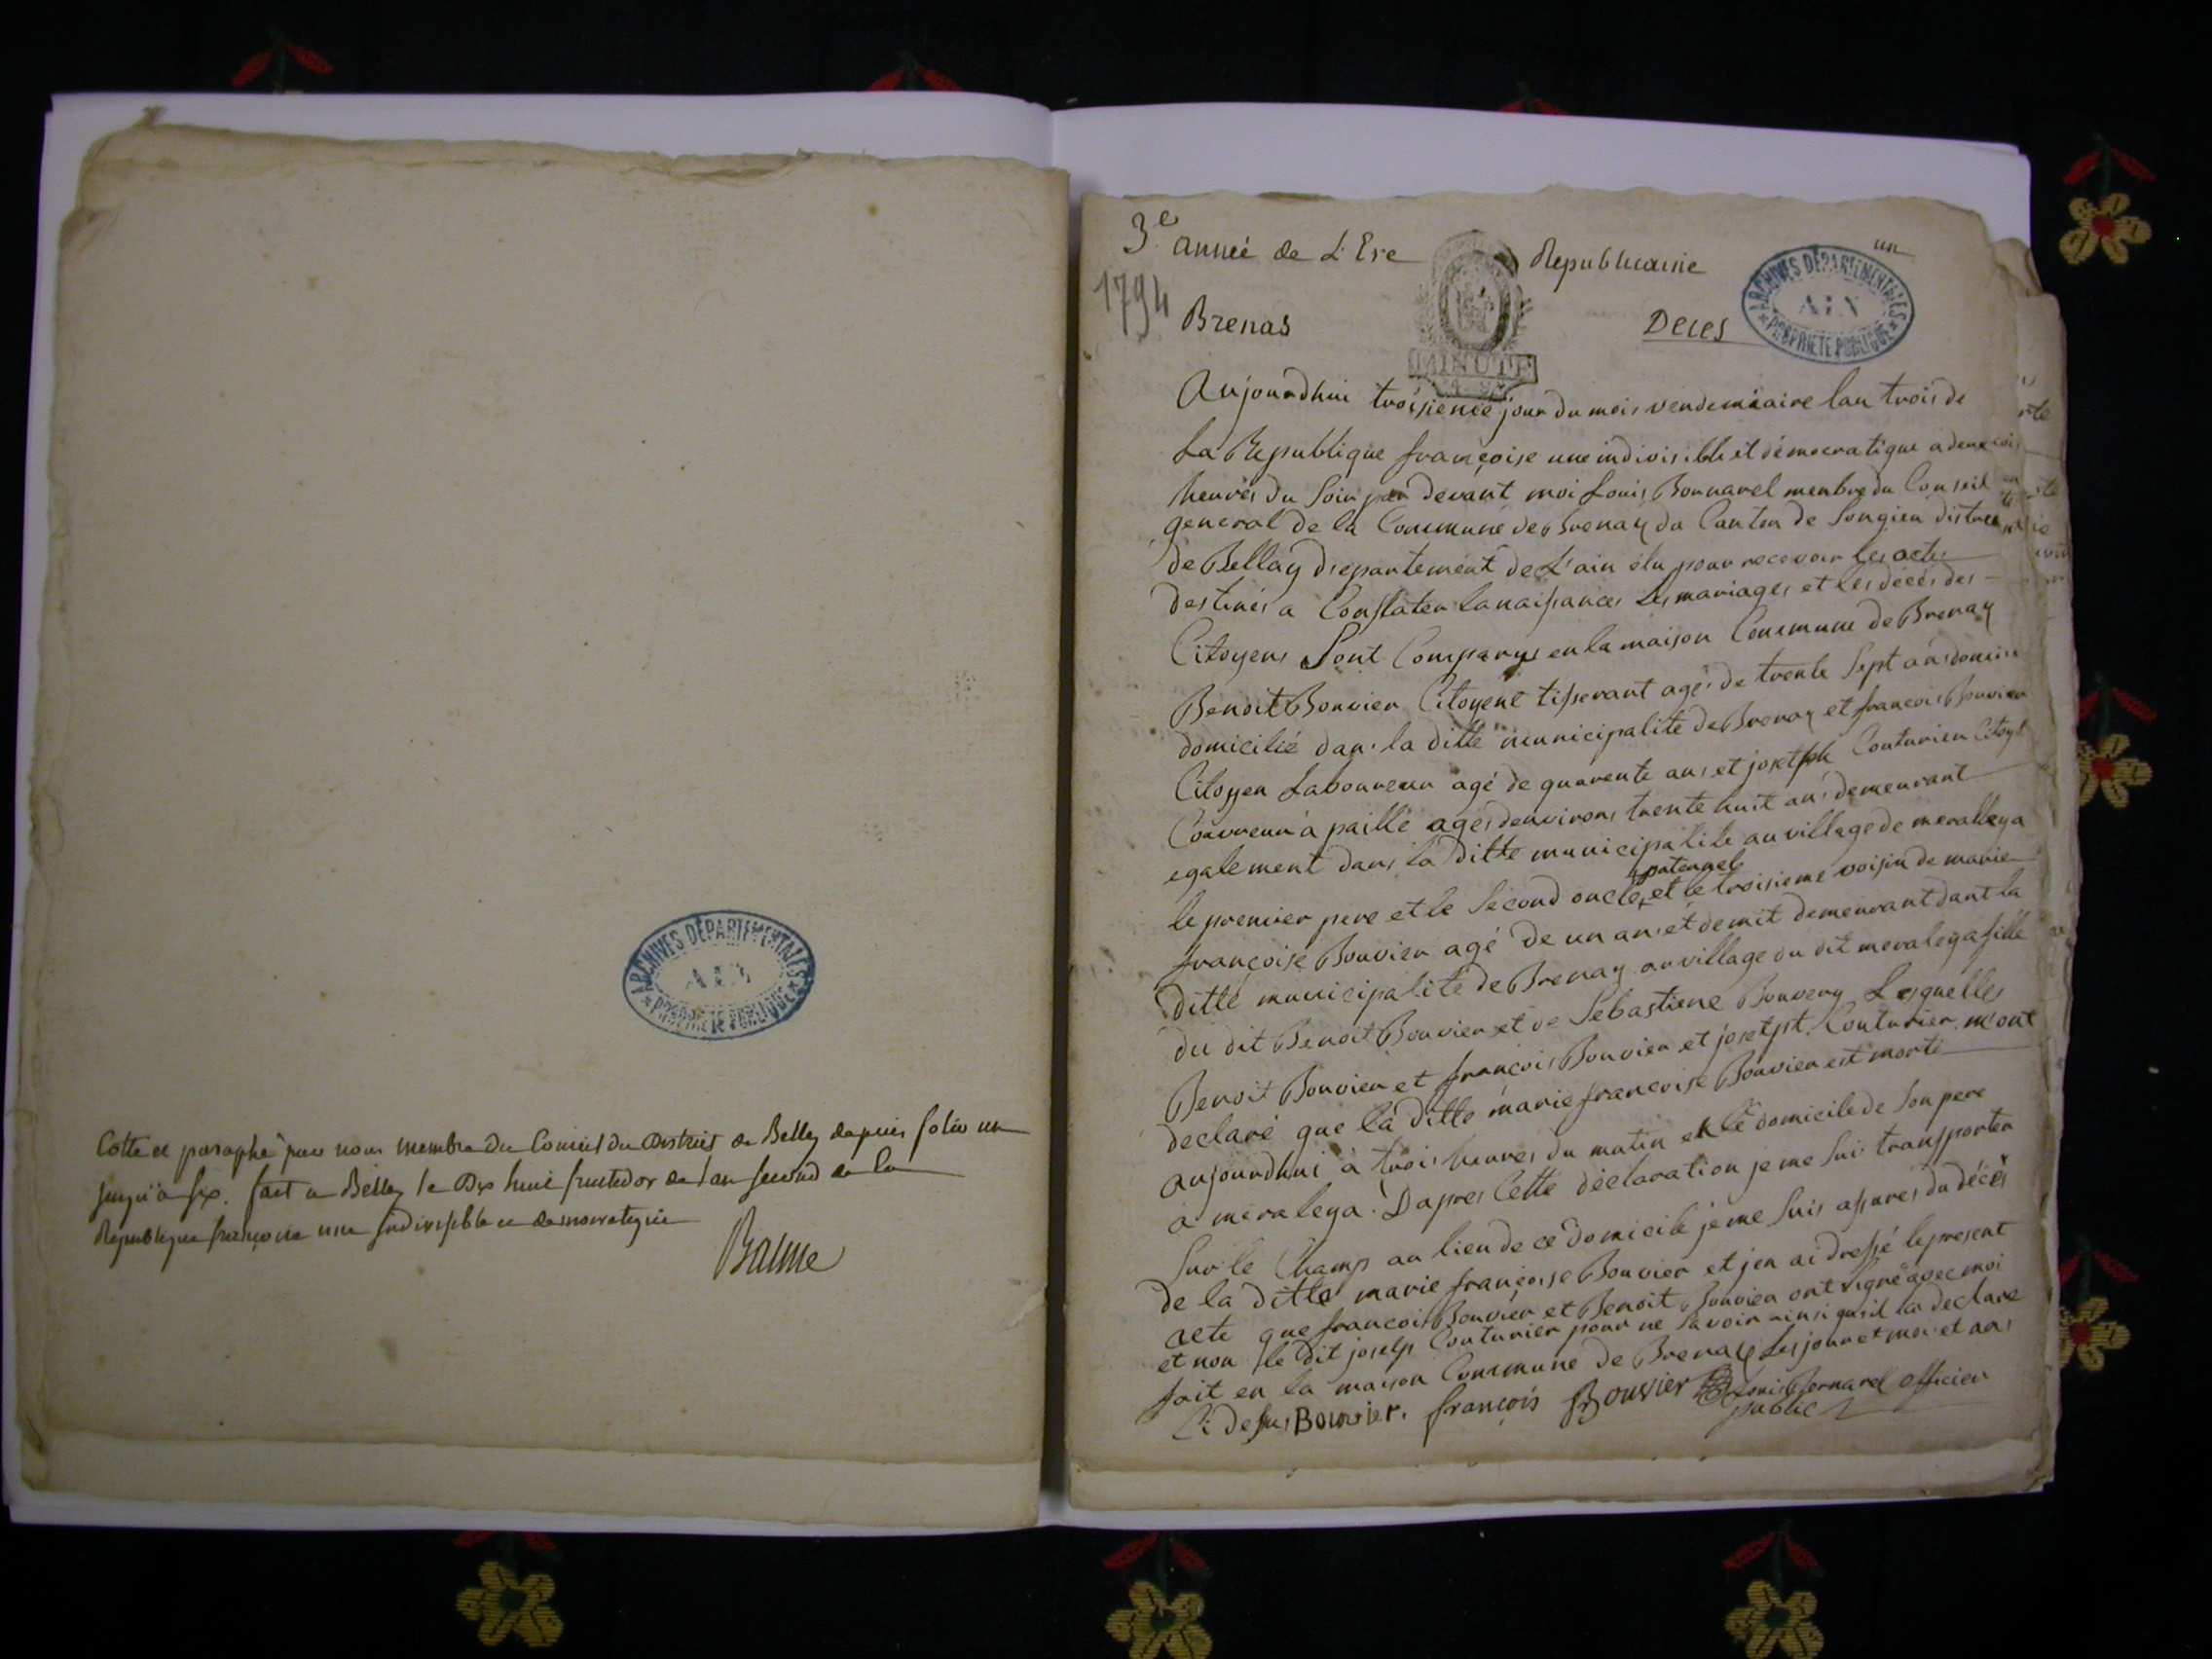 Cotté et paraphé par nous membre du Conseil du District de Belley depuis folio un
jusqu'à six. fait a Belley le Dix huit fructidor de l'an second de la
Republique françoise une indivisible et democratique
Balme
ARCHIVES DÉPARTEMENTALES
AIN
PROPRIETE PUBLIQUE
3e année de L'Ere Republicaine
un
1794
Brenas
Deces
MINUTE
ARCHIVES DÉPARTEMENTALES
AIN
PROPRIETE PUBLIQUE
Aujourdhui troisieme jour du mois vendemiaire lan trois de
La Republique françoise une indivisible et démocratique a deux
heures du Soir par devant moi Louis Bonnarel menbre du Conseil
general de la Commune de Brenay du Canton de Songieu district
de Bellay departement de L'ain élu pour recevoir les actes
destinés a Constater la naissances Les mariages et les décés des
Citoyens Sont Comparus en la maison Commune de Brenay
Benoit Bouvier Citoyent tisserant agés de trente Sept ans
domicilié dans la ditte municipalité de Brenay et francois Bouvier
Citoyen Laboureur agé de quarente ans et josetph Couturier Citoyt
Couvreur à paille agés denvirons trente huit ans demeurant
egalement dans la ditte municipalite au village de meralleya
le premier pere et le Second oncle paternel et le troisieme voisin de marie
françoise Bouvier agé de un ans et demit demeurant dant la
ditte municipalité de Brenay au village du dit meraleya fille
du dit Benoit Bouvier et de Sébastiene Bouvery Lesquelles
Benoit Bouvier et françois Bouvier et josetpt Couturier m'ont
declaré que la ditte marie francoise Bouvier est morte
aujourdhui à trois heures du matin en le domicile de Son pere
a meraleya. D'apres Cette déclaration je me Suis transporter
Sur le Champ au lieu de ce domicile je me Suis assurés du décés
de la ditte marie françoise Bouvier et jen ai dressé le present
acte que francois Bouvier et Benoit Bouvier ont signé avec moi
et non le dit joseph Couturier pour ne Savoir ainsi quil la declare
fait en la maison Commune de Brenay Les jour et moi et ans
Ci dessus Bouvier. françois Bouvier Louis Bonnarel officier
public